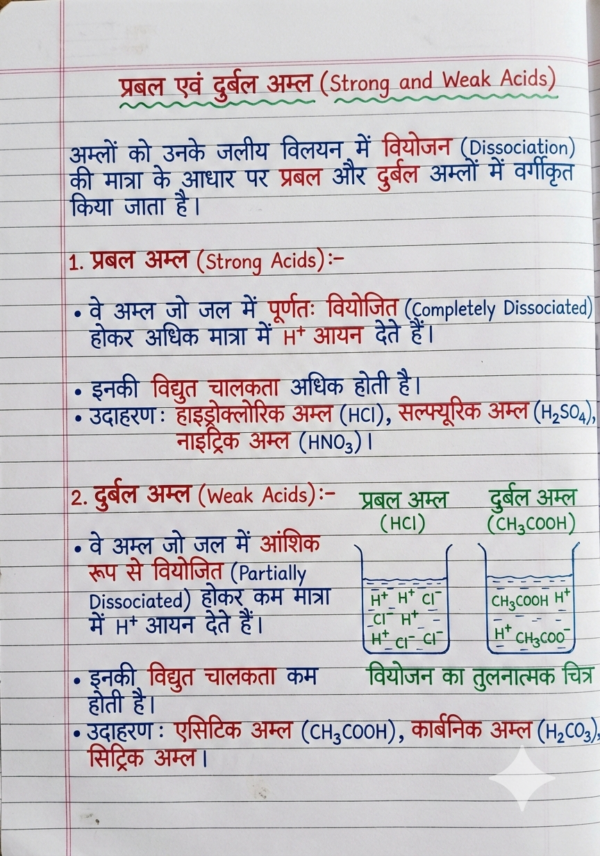 प्रबल एवं दुर्बल अम्ल (Strong and Weak Acids)
अम्लों को उनके जलीय विलयन में वियोजन (Dissociation)
की मात्रा के आधार पर प्रबल और दुर्बल अम्लों में वर्गीकृत
किया जाता है।
1. प्रबल अम्ल (Strong Acids):-
• वे अम्ल जो जल में पूर्णतः वियोजित (Completely Dissociated)
होकर अधिक मात्रा में H⁺ आयन देते हैं।
• इनकी विद्युत चालकता अधिक होती है।
• उदाहरण: हाइड्रोक्लोरिक अम्ल (HCl), सल्फ्यूरिक अम्ल (H₂SO₄),
नाइट्रिक अम्ल (HNO₃)।
2. दुर्बल अम्ल (Weak Acids):-
• वे अम्ल जो जल में आंशिक
रूप से वियोजित (Partially
Dissociated) होकर कम मात्रा
में H⁺ आयन देते हैं।
• इनकी विद्युत चालकता कम
होती है।
प्रबल अम्ल
(HCl)
H⁺ H⁺ Cl⁻
Cl⁻ H⁺
H⁺ Cl⁻ Cl⁻
दुर्बल अम्ल
(CH₃COOH)
CH₃COOH H⁺
H⁺ CH₃COO⁻
वियोजन का तुलनात्मक चित्र
• उदाहरण: एसिटिक अम्ल (CH₃COOH), कार्बनिक अम्ल (H₂CO₃),
सिट्रिक अम्ल।